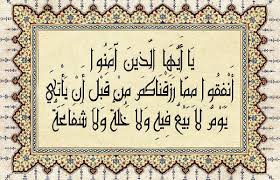 يَا أَيُّهَا الَّذِينَ آمَنُوا
أَنْفِقُوا مِمَّا رَزَقْنَاكُمْ مِنْ قَبْلِ أَنْ يَأْتِيَ
يَوْمٌ لَا بَيْعٌ فِيهِ وَلَا خُلَّةٌ وَلَا شَفَاعَةٌ